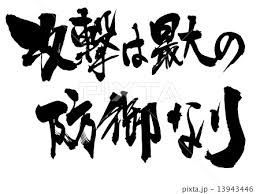 攻撃は最大の
防御なり
PIXTA
pixta.jp - 13943446